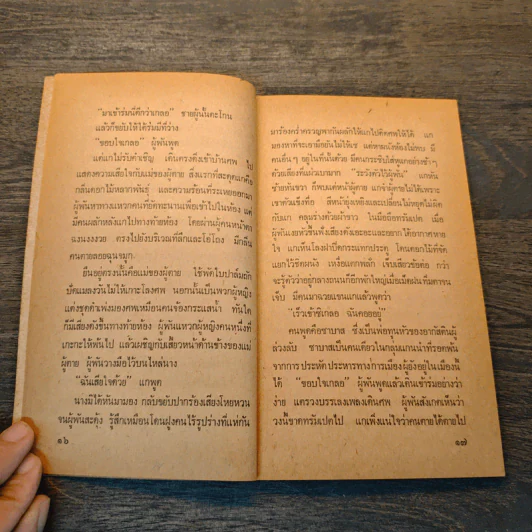 "มาเข้าร่มนี่ดีกว่าเกลอ" ชายผู้นั้นตะโกน
แล้วก็ขยับให้ใต้ร่มมีที่ว่าง
"ขอบใจเกลอ" ผู้พันพูด
แต่แกไม่รับคำเชิญ เดินตรงดิ่งเข้าบ้านศพ ไป
แสดงความเสียใจกับแม่ของผู้ตาย สิ่งแรกที่สะดุดแกคือ
กลิ่นดอกไม้หลากพันธุ์ และความร้อนที่ระเหยออกมา
ผู้พันหาทางแหวกคนที่ยัดทะนานเพื่อเข้าไปในห้อง แต่
มีคนผลักหลังแกไปทางท้ายห้อง โดยผ่านผู้คนหน้าตา
ฉงนงงงวย ตรงไปยังบริเวณที่ลึกและโอ่โถง มีกลิ่น
คนตายลอยฉุนจมูก
ยืนอยู่ตรงนั้นคือแม่ของผู้ตาย ใช้พัดใบปาล์มสัก
ปัดแมลงวันไม่ให้เกาะโลงศพ นอกนั้นเป็นพวกผู้หญิง
แต่งชุดดำเพ่งมองศพเหมือนคนจ้องกระแสน้ำ ทันใด
ก็มีเสียงดังขึ้นทางท้ายห้อง ผู้พันแหวกผู้หญิงคนหนึ่งที่
เกะกะให้พ้นไป แล้วเผชิญกับเสี้ยวหน้าด้านข้างของแม่
ผู้ตาย ผู้พันวางมือไว้บนไหล่นาง
"ฉันเสียใจด้วย" แกพูด
นางมิได้หันมามอง กลับขยับปากร้องเสียงโหยหวน
จนผู้พันสะดุ้ง รู้สึกเหมือนโดนฝูงคนไร้รูปร่างที่แห่กัน
๑๖
มาร้องคร่ำครวญพากันผลักให้แกไปติดศพให้ได้ แก
มองหาที่จะเอามือยันไม่ให้เซ แต่หาผนังห้องไม่พบ มี
คนอื่นๆ อยู่ในที่นั้นด้วย มีคนกระซิบใส่หูแกอย่างช้าๆ
ด้วยเสียงที่แผ่วเบามาก "ระวังตัวไว้ผู้พัน" แกหัน
ซ้ายหันขวา ก็พบแต่หน้าผู้ตาย แกจำผู้ตายไม่ได้เพราะ
เขาตัวแข็งทื่อ สีหน้ายุ่งเหยิงและเปลี่ยนไม่หยุดไม่ผิด
กับแก คลุมร่างด้วยผ้าขาว ในมือถือทรัมเปต เมื่อ
ผู้พันเงยหัวขึ้นฟังเสียงดังเอะอะและอยากได้อากาศหาย
ใจ แกเห็นโลงฝาปิดกระแทกประตู โดนดอกไม้ที่จัด
แยกไว้ชิดผนัง เหงื่อแตกพลัก เจ็บเสียวข้อต่อ กว่า
จะรู้ตัวว่าอยู่กลางถนนก็อีกพักใหญ่เมื่อเม็ดฝนทิ่มตาจน
เจ็บ มีคนมาฉวยแขนแกแล้วพูดว่า
"เร็วเข้าซิเกลอ ฉันคอยอยู่"
คนพูดคือซาบาส ซึ่งเป็นพ่อทูนหัวของยากสัตินผู้
ล่วงลับ ซาบาสเป็นคนเดียวในกลุ่มแกนนำที่รอดพ้น
จากการประหัตประหารทางการเมืองผู้ยังอยู่ในเมืองนี้
ได้ "ขอบใจเกลอ" ผู้พันพูดแล้วเดินเข้าร่มอย่างว่า
ง่าย แตรวงบรรเลงเพลงเดินศพ ผู้พันสังเกตเห็นว่า
วงนี้ขาดทรัมเปตไป แกเพิ่งแน่ใจว่าคนตายได้ตายไป
๑๗